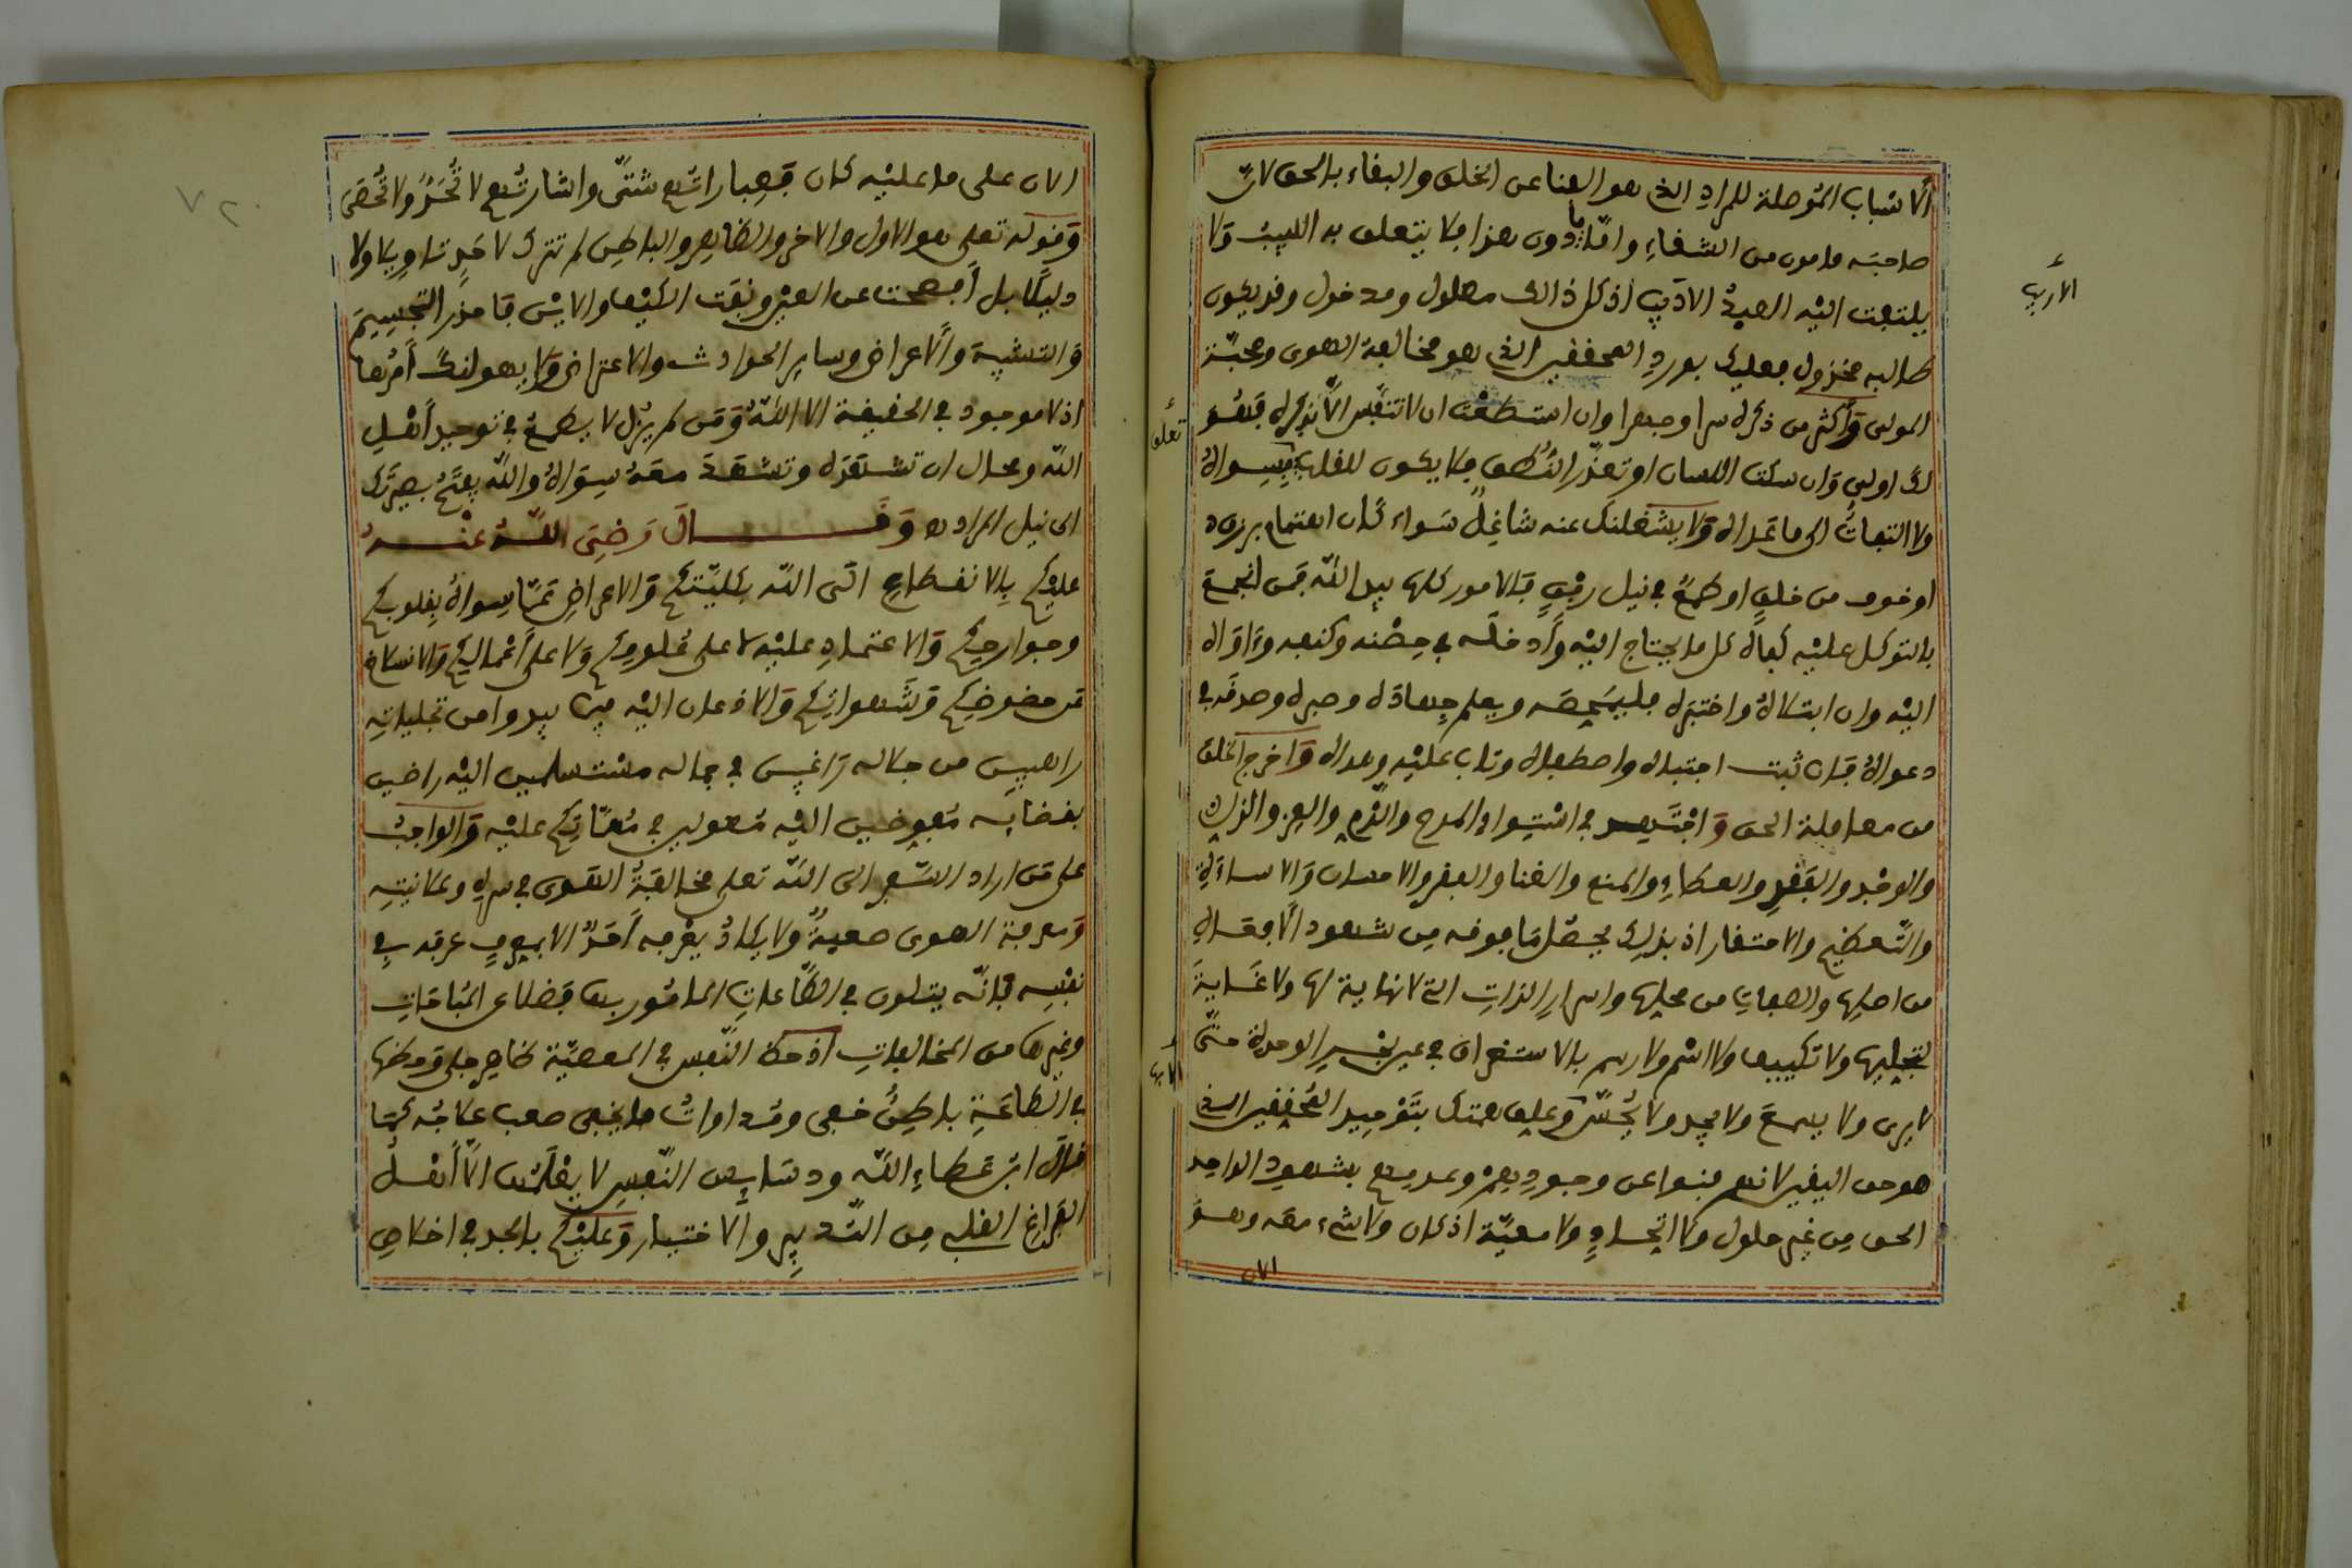 الاسباب الموصلة للمراد الذي هو الفنا عن الخلق والبقاء بالحق لان
صاحبه مامون من الشقاء واما ما دون هذا فلا يتعلق به اللبيب ولا
يلتفت اليه العبد الاديب اذ كل ذالك معلول ومدخول وقد يكون
طالبه مخذول فعليك بورد المحققين الذي هو مخالفة الهوى ومحبة
المولى وأكثر من ذكره سرا وجهرا وان استطعت ان لا تتنفس الا بذكره فهو
لك اولى وان سكت اللسان او تعذر النطق فلا يكون للقلب سواه
ولا التفات الى ما عداه ولا يشغلنك عنه شاغل سواء كان اهتمام برزق
او خوف من خلق او طمع في نيل رفق فالامور كلها بيد الله فمن انجمع
بالتوكل عليه كفاه كل ما يحتاج اليه وأدخله في حصنه وكنفه وءاواه
اليه وان ابتلاه واختبره فليمحصه ويعلم جهاده وصبره وصدقه في
دعواه فان ثبت اجتباه واصطفاه وتاب عليه وهداه واخرج الخلق
من معاملة الحق واجتهد في استواء المدح والذم والعز والذل
والوجد والفقد والعطاء والمنع والغنا والفقر والاحسان والاساءة
والتعظيم والاحتقار اذ بذلك يحصل ما فوقه من شهود الافعال
من اصلها والصفات من محلها واسرار الذات التي لا نهاية لها ولا غاية
لتجليها ولا تكييفها ولا اسم ولا رسم بالاستغراق في عين بحر الوحدة حتى
لا يرى ولا يسمع ولا يجد ولا يحس وعلق همتك بتوحيد المحققين الذي
هو حق اليقين لانهم فنوا عن وجودهم وعدمهم بشهود الواحد
الحق من غير حلول ولا اتحاد ولا معية اذ كان ولا شيء معه وهو
الان
الأدب
تعلق
الان على ما عليه كان فعباراتهم شتى واشارتهم لا تحد ولا تحصى
وقوله تعلى هو الاول والاخر والظاهر والباطن لم تترك لاحد تاويلا ولا
دليلا بل أفصحت عن العين ونفت الكيف والاين فاحذر التجسيم
والتشبيه والاعراض وساير الحوادث والاعتراض ولا يهولنك أمرها
اذ لا موجود في الحقيقة الا الله ومن لم يزل لا يطمع في توحيد أهل
الله ومحال ان تشهده وتشهد معه سواه والله يفتح بصيرتك
الى نيل المراد وقال رضي الله عنه
عليكم بالانقطاع الى الله بكليتكم والاعراض عما سواه بقلوبكم
وجوارحكم والاعتماد عليه لا على علومكم ولا على أعمالكم والانسلاخ
عن حضوضكم وشهواتكم والاذعان اليه فيما يبدوا من تجلياته
راهبين من جلاله راغبين في جماله مستسلمين اليه راضين
بقضايه مفوضين اليه معولين في مهماتكم عليه والواجب
على من اراد السير الى الله تعلى مخالفة الهوى في سره وعلانيته
ومعرفة الهوى صعبة ولا يكاد يعرفه أحد الا بمعرف عرفه في
نفسه فانه يتلون في الطاعات المامور بها فضلا عن المباحات
وغيرها من المخالفات اذ حظ النفس في المعصية ظاهر جلي وحظها
في الطاعة باطن خفي ومداوات ما يخفى صعب علاجه كما
قال ابن عطاء الله ودسايس النفس لا يعلمها الا أهل
الفراغ القلب من التدبير والاختيار وعليكم بالجد في اخلاص